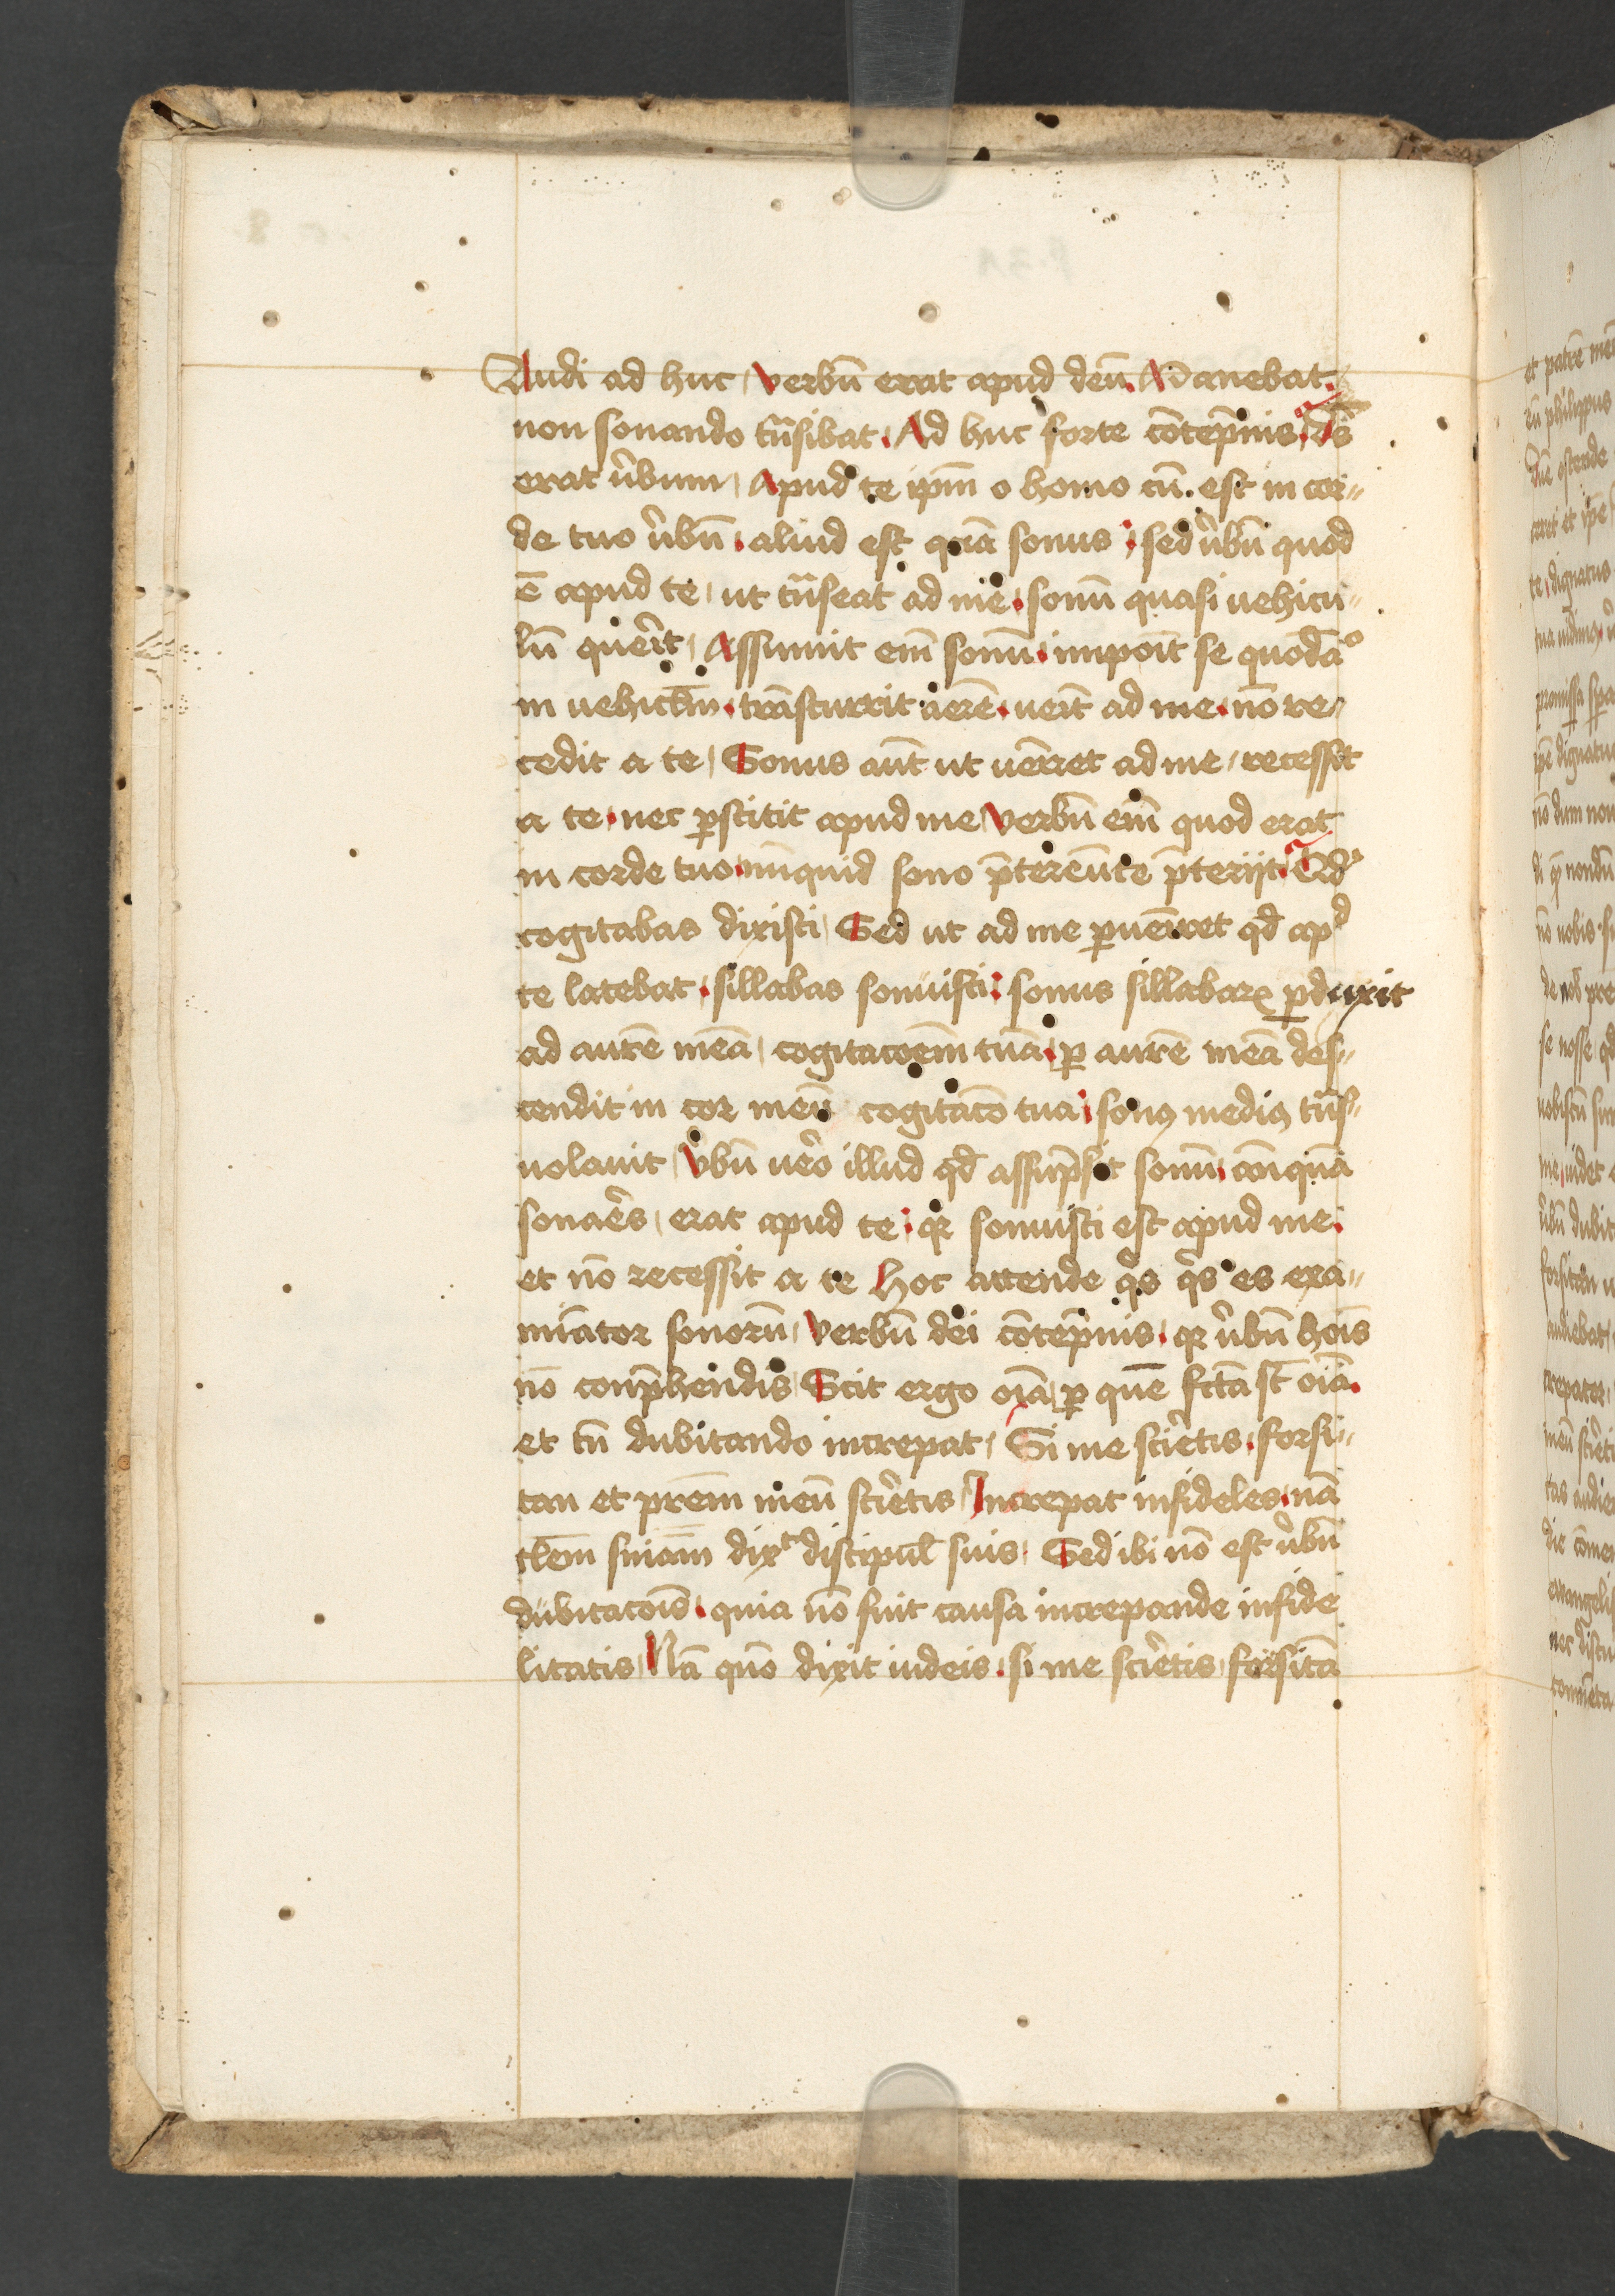 Audi ad huc, verbū erat apud deū. Manebat.
non sonando tn̄sibat. Ad huc forte cōtēpnis. Ds̄
erat v̄bum, Apud te ip̄m o homo cū. est in cor-
de tuo v̄bū. aliud est quā sonus, sed v̄bū quod
ē apud te, ut tn̄seat ad me. sonū quasi uehicu-
lū querit, Assumit em̄ sonū. impōit se quodāᵒ
in uehiclm̄. trāscurrit aerē. ueīt ad me. nō re-
cedit a te, Sonus aūt ut ueīret ad me, recessit
a te. nec p̱stitit apud me, Verbū em̄ quod erat
in corde tuo. nūquid sono p̄tereūte p̄teriit. Qd̄
cogitabas dixisti, Sed ut ad me p̱ueīret qd̄ apᵈ
te latebat. sillabas sonuisti. sonus sillabaꝝ p̱duxit
ad aurē meā, cogitacōem̄ tuā. p̱ aurē meā des-
cendit in cor meū cogitacō tua. sonꝰ mediꝰ tn̄s-
uolauit, V̄bū uēo illud qd̄ assūpsit sonū. anꝗuā
sonāes, erat apud te. qꝛ sonuisti est apud me.
et nō recessit a te Hoc attende qͥs qͥs es exa-
mīator sonorū, Verbū dei cōtēpnis. qꝛ v̄bū hoīs
nō conp̄hendis, Scit ergo oīa, p̱ quē fcta st̄ oīa.
et tn̄ dubitando increpat, Si me scīetis. forsi-
tan et prem̄ meū scīetis, Increpat infideles. nā
tlem̄ sniam̄ dixᵗ discipul̄ suis. Sed ibi nō est v̄bū
dubitacōis. quia nō fuit causa increpande infide
litatis, Nā quō dixit iudeis. si me scīetis, forsitā